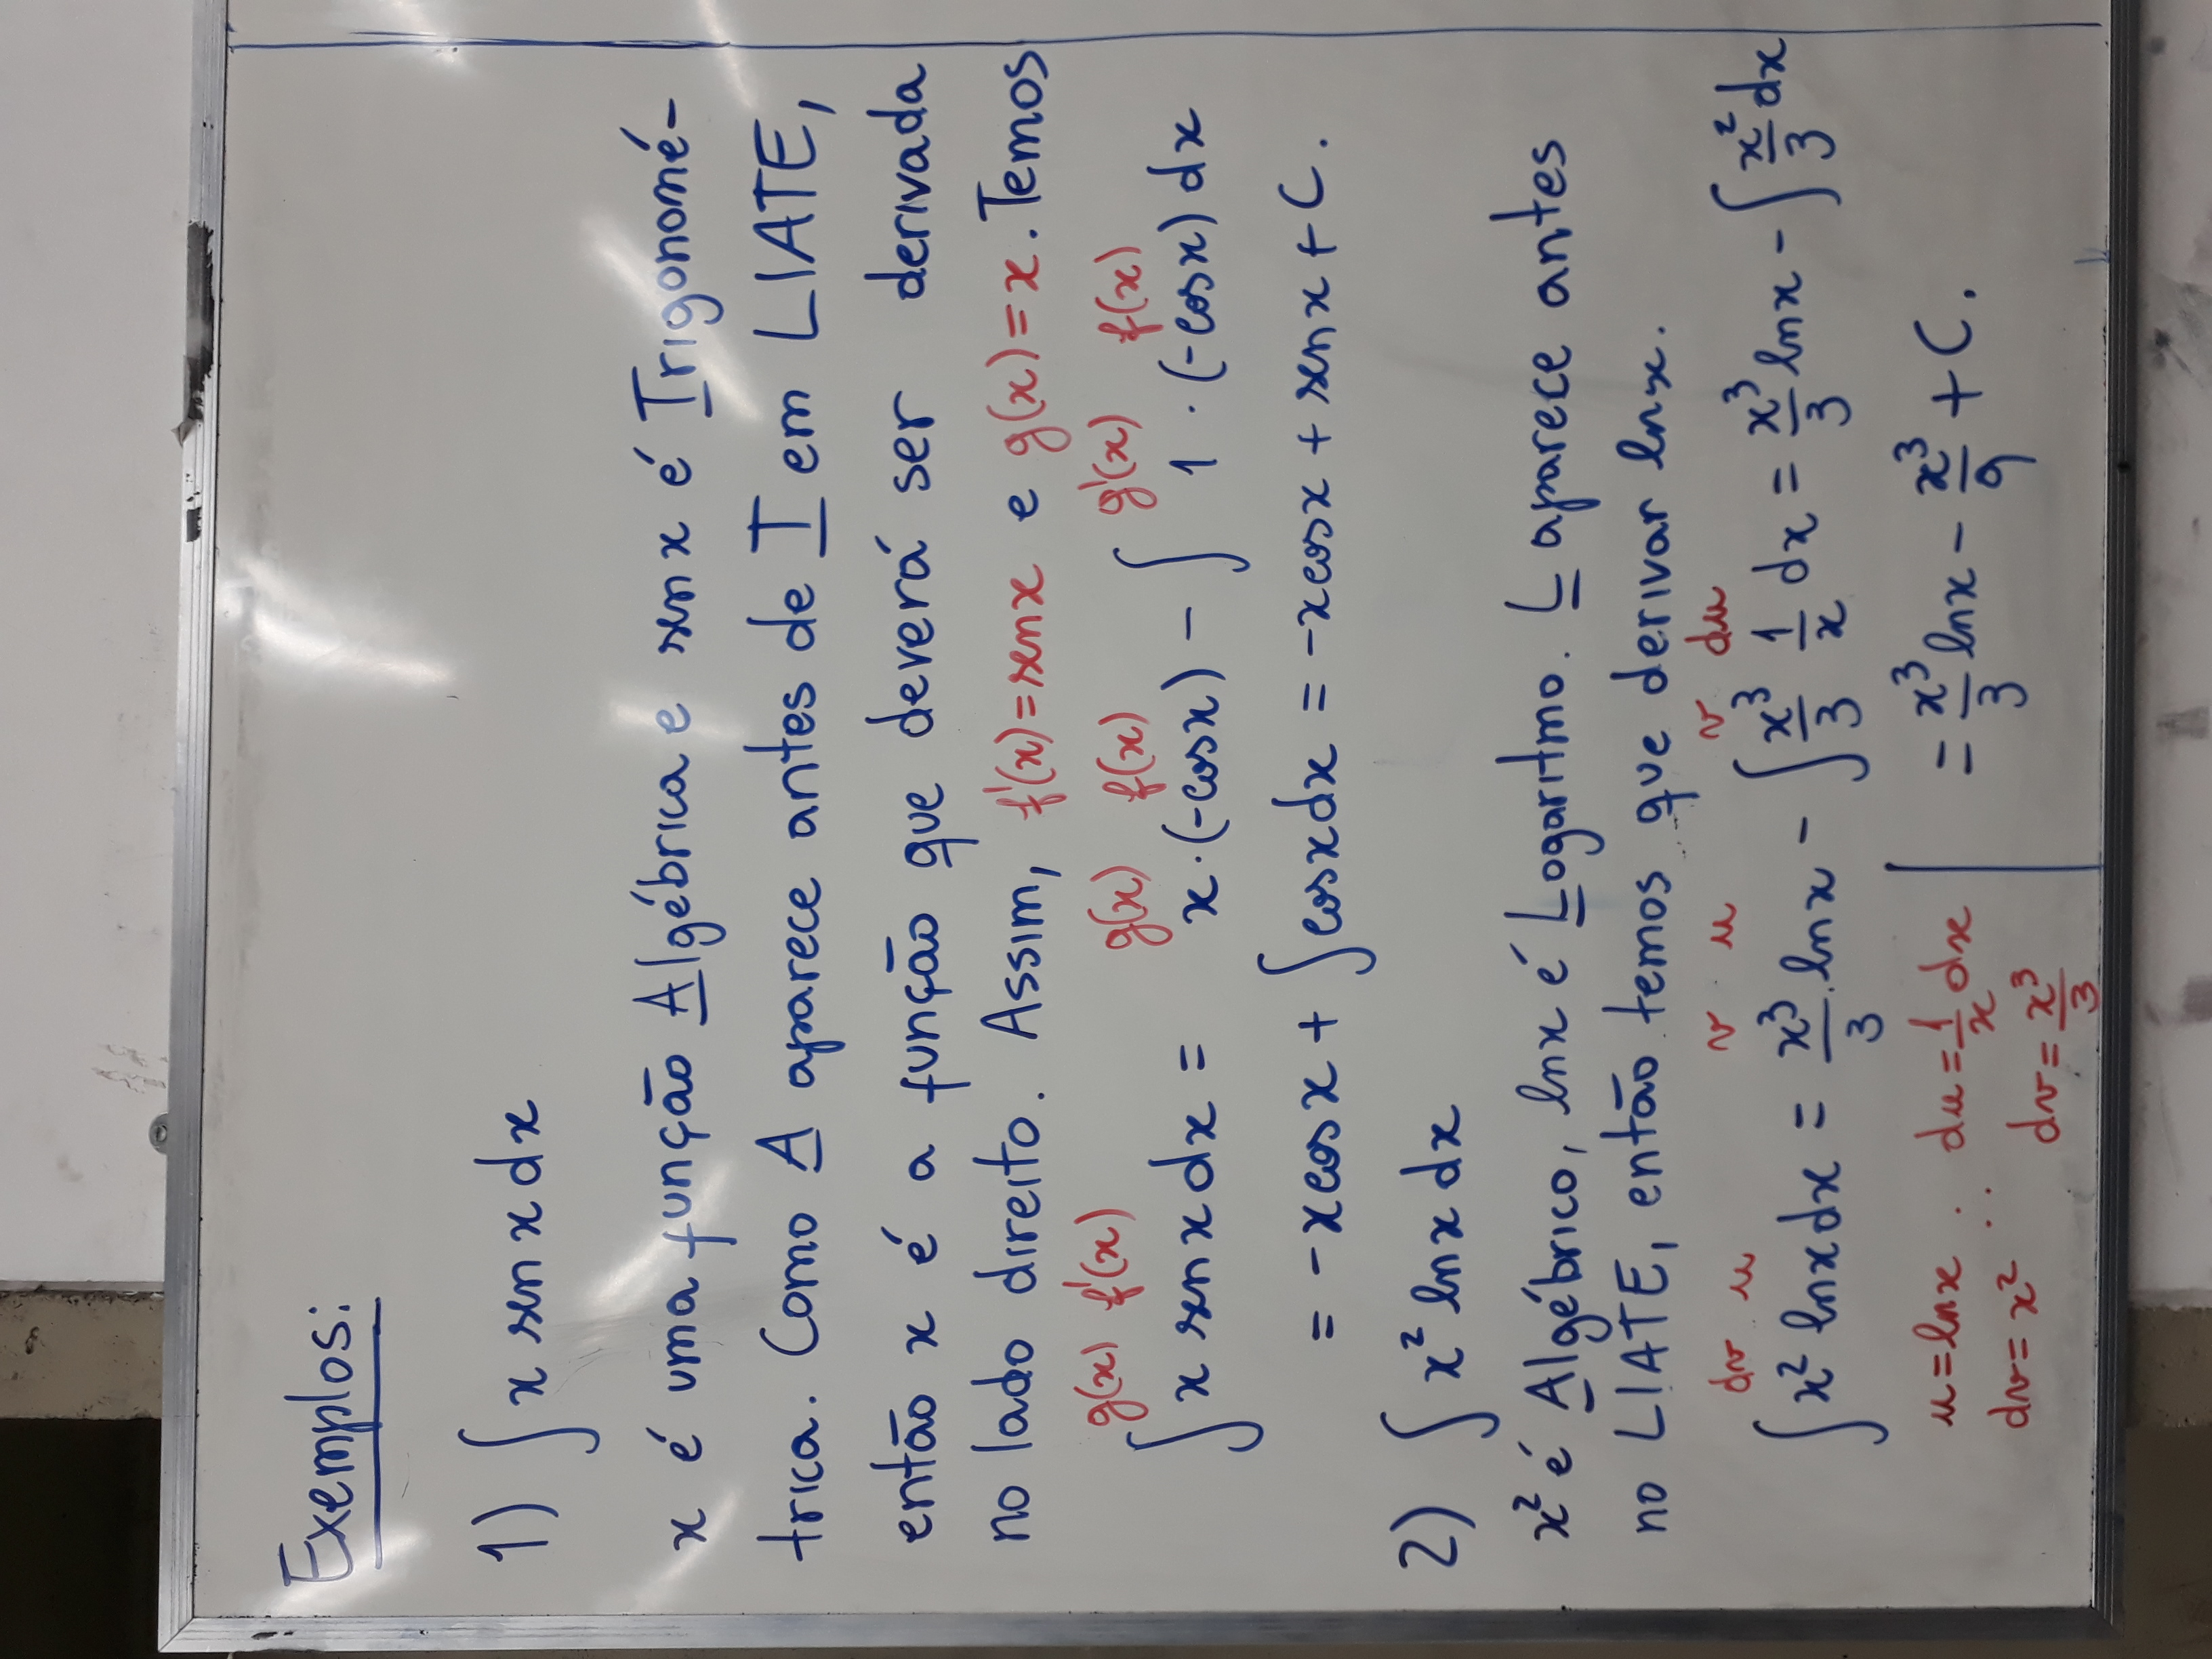 Exemplos:
1) ∫ x sen x dx
x é uma função Algébrica e sen x é Trigonomé-
trica. Como A aparece antes de T em LIATE,
então x é a função que deverá ser derivada
no lado direito. Assim, f'(x)=senx e g(x)=x. Temos
g(x) f'(x) g(x) f(x) g'(x) f(x)
∫ x sen x dx = x·(-cosx) - ∫ 1 · (-cosx) dx
= -xcosx + ∫cosxdx = -xcosx + senx + C.
2) ∫ x² lnx dx
x² é Algébrico, lnx é Logaritmo. L aparece antes
no LIATE, então temos que derivar lnx.
dv u v u v du
∫ x² lnxdx = x³/3 . lnx - ∫ x³/3 1/x dx = x³/3 lnx - ∫ x²/3 dx
u = lnx ∴ du = 1/x dx
dv = x² dv = x³/3
= x³/3 lnx - x³/9 + C.